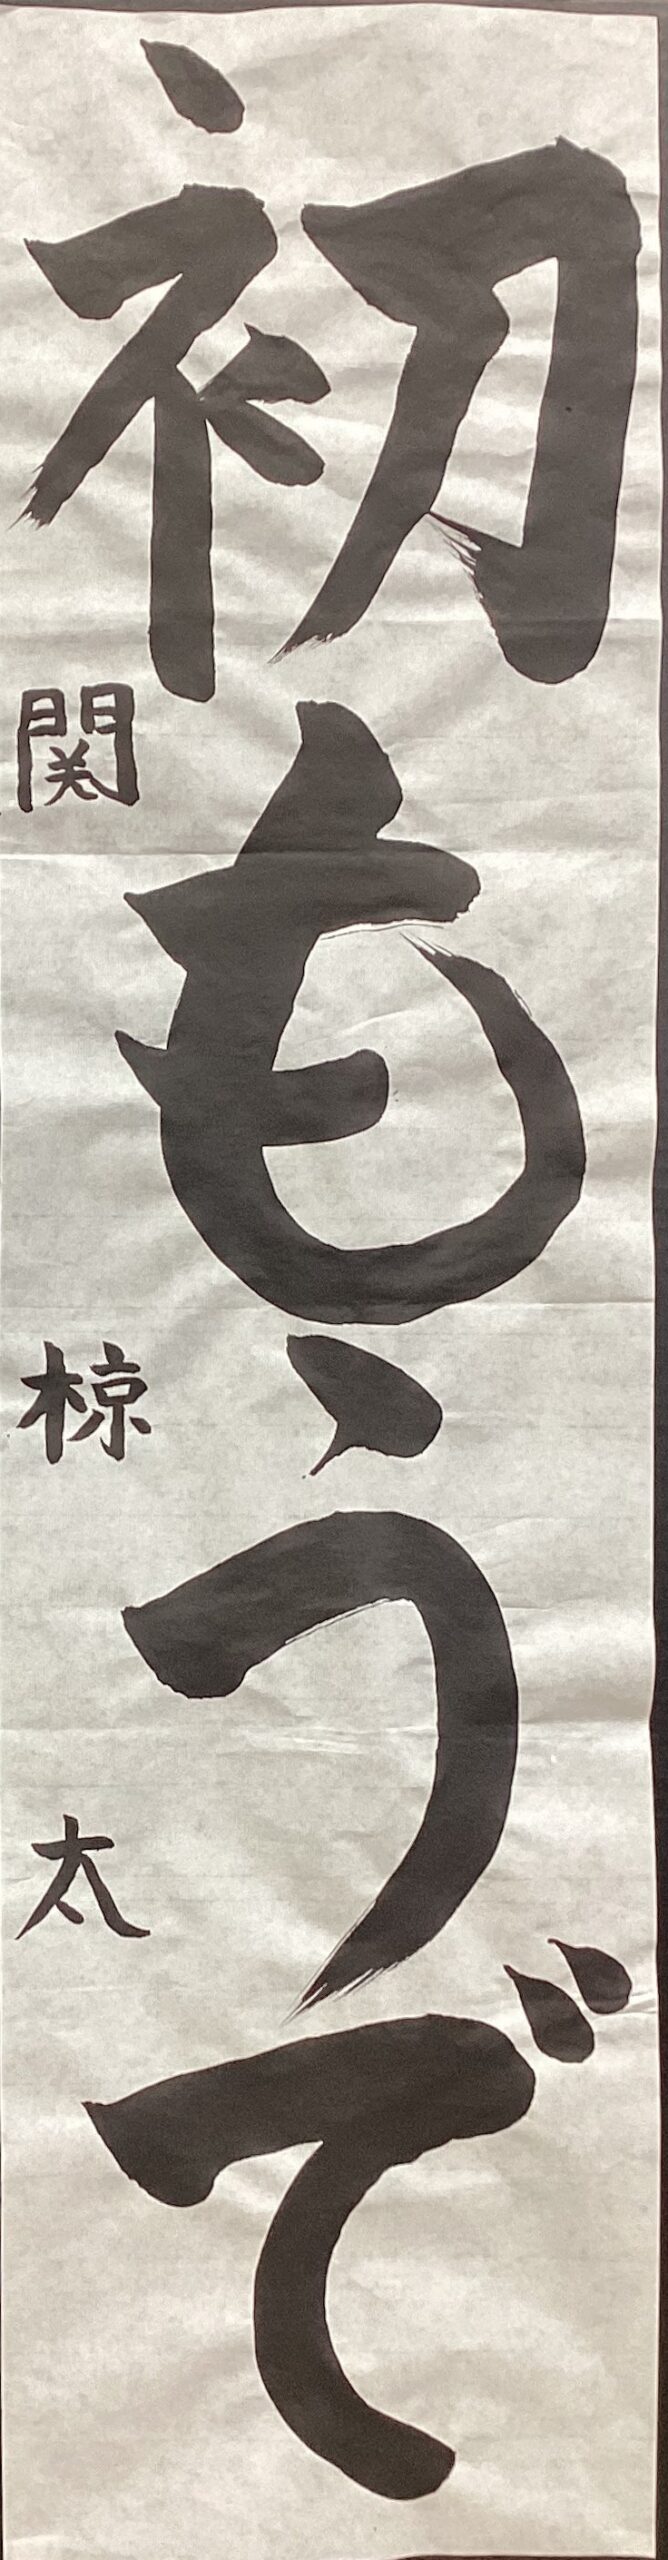 初もうで
関椋太